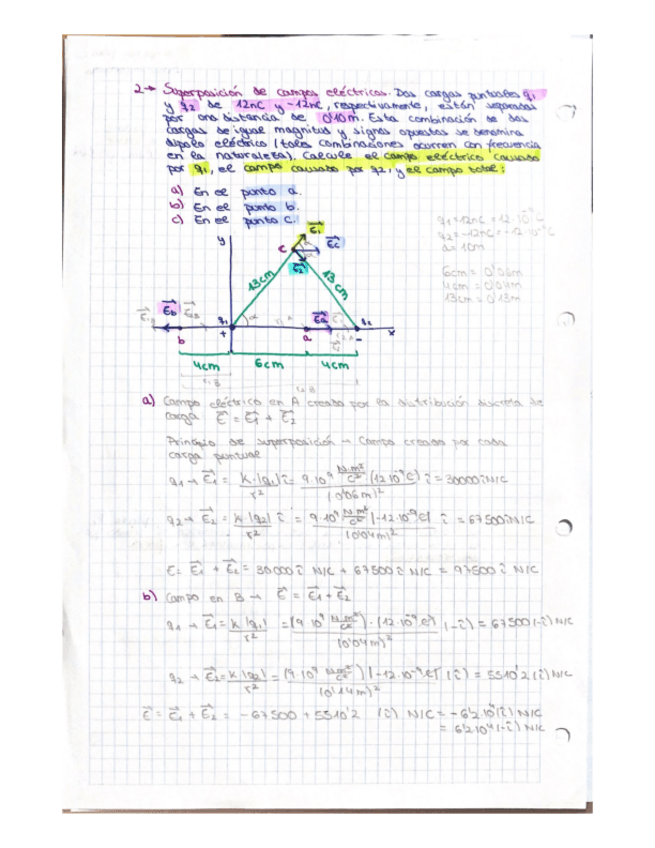 2→ Superposición de campos eléctricos. Dos cargas puntuales q1
y q2 de 12nC y -12nC, respectivamente, están separadas
por una distancia de 0'10m. Esta combinación de dos
cargas de igual magnitud y signos opuestos se denomina
dipolo eléctrico (tales combinaciones ocurren con frecuencia
en la naturaleza). Calcule el campo eléctrico causado
por q1, el campo causado por q2, y el campo total:
a) En el punto a.
b) En el punto b.
c) En el punto c.
q1=12nC = 12·10⁻⁹C
q2=-12nC = -12·10⁻⁹C
6cm = 0'06m
4cm = 0'04m
13cm = 0'13m
y
E1
c
α
Ec
E2
13cm
13cm
Eb
q1
α
Ea
q2
x
b
+
a
-
4cm
6cm
4cm
a) Campo eléctrico en A creado por la distribución discreta de
carga E = E1 + E2
Principio de superposición → Campo creado por cada
carga puntual
q1 → E1 = K·|q1| / r² î = 9·10⁹ N·m²/C² (12·10⁻⁹C) / (0'06m)² î = 30000 î N/C
q2 → E2 = K·|q2| / r² î = 9·10⁹ N·m²/C² |-12·10⁻⁹C| / (0'04m)² î = 67500 î N/C
E = E1 + E2 = 30000 î N/C + 67500 î N/C = 97500 î N/C
b) Campo en B → E = E1 + E2
q1 → E1 = K·|q1| / r² = (9·10⁹ N·m²/C²)·(12·10⁻⁹C) / (0'04m)² (-î) = 67500 (-î) N/C
q2 → E2 = K·|q2| / r² = (9·10⁹ N·m²/C²) |-12·10⁻⁹C| / (0'14m)² (î) = 5510'2 (î) N/C
E = E1 + E2 = -67500 + 5510'2 (î) N/C = -6'2·10⁴(î) N/C
= 6'2·10⁴(-î) N/C